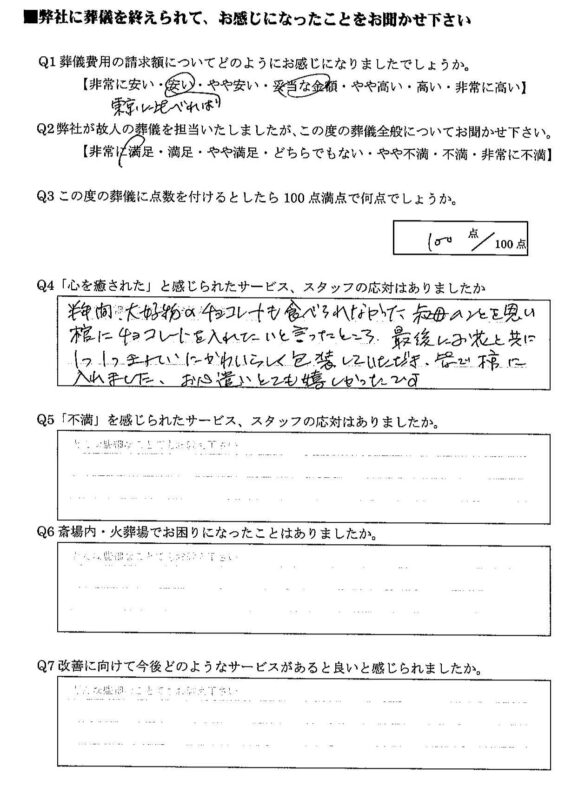 ■弊社に葬儀を終えられて、お感じになったことをお聞かせ下さい
Q1 葬儀費用の請求額についてどのようにお感じになりましたでしょうか。
【非常に安い・安い・やや安い・妥当な金額・やや高い・高い・非常に高い】
東京に比べれば
Q2 弊社が故人の葬儀を担当いたしましたが、この度の葬儀全般についてお聞かせ下さい。
【非常に満足・満足・やや満足・どちらでもない・やや不満・不満・非常に不満】
Q3 この度の葬儀に点数を付けるとしたら 100 点満点で何点でしょうか。
100 点／100 点
Q4「心を癒された」と感じられたサービス、スタッフの応対はありましたか
間、大好物のチョコレートも食べられなかった叔母のことを思い
棺にチョコレートを入れたいと言ったところ、最後にお花と共に
1つ1つきれいにかわいらしく包装していただき、皆で棺に
入れました、お心遣いとても嬉しかったです
Q5「不満」を感じられたサービス、スタッフの応対はありましたか。
どんな些細なことでもお伝え下さい
Q6 斎場内・火葬場でお困りになったことはありましたか。
どんな些細なことでもお伝え下さい
Q7 改善に向けて今後どのようなサービスがあると良いと感じられましたか。
どんな些細なことでもお伝え下さい